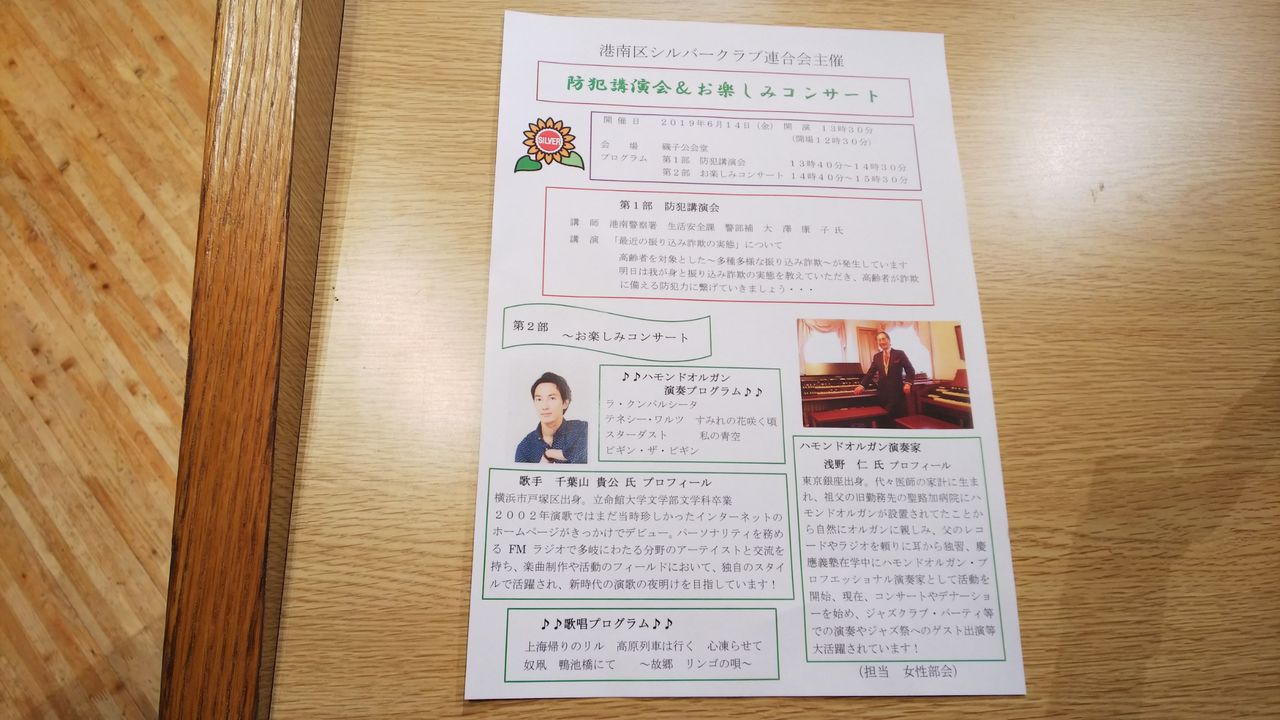 港南区シルバークラブ連合会主催
防犯講演会＆お楽しみコンサート
SILVER
開催日 ２０１９年６月１４日（金） 開演 １３時３０分
（開場１２時３０分）
会場 磯子公会堂
プログラム 第１部 防犯講演会 １３時４０分～１４時３０分
第２部 お楽しみコンサート １４時４０分～１５時３０分
第１部 防犯講演会
講師 港南警察署 生活安全課 警部補 大 澤 康 子 氏
講演 「最近の振り込み詐欺の実態」について
高齢者を対象とした～多種多様な振り込み詐欺～が発生しています
明日は我が身と振り込み詐欺の実態を教えていただき、高齢者が詐欺
に備える防犯力に繋げていきましょう・・・
第２部
～お楽しみコンサート
♪♪ハモンドオルガン
演奏プログラム♪♪
ラ・クンパルシータ
テネシー・ワルツ すみれの花咲く頃
スターダスト 私の青空
ビギン・ザ・ビギン
歌手 千葉山 貴公 氏 プロフィール
横浜市戸塚区出身。立命館大学文学部文学科卒業
２００２年演歌ではまだ当時珍しかったインターネットの
ホームページがきっかけでデビュー。パーソナリティを務め
る FM ラジオで多岐にわたる分野のアーティストと交流を
持ち、楽曲制作や活動のフィールドにおいて、独自のスタイ
ルで活躍され、新時代の演歌の夜明けを目指しています！
♪♪歌唱プログラム♪♪
上海帰りのリル 高原列車は行く 心凍らせて
奴凧 鴨池橋にて ～故郷 リンゴの唄～
ハモンドオルガン演奏家
浅野 仁 氏 プロフィール
東京銀座出身。代々医師の家計に生ま
れ、祖父の旧勤務先の聖路加病院にハ
モンドオルガンが設置されてたことから
自然にオルガンに親しみ、父のレコ
ードやラジオを頼りに耳から独習、慶
應義塾在学中にハモンドオルガン・プ
ロフエッショナル演奏家として活動を
開始、現在、コンサートやデナーショ
ーを始め、ジャズクラブ・パーティ等
での演奏やジャズ祭へのゲスト出演等
大活躍されています！
（担当 女性部会）